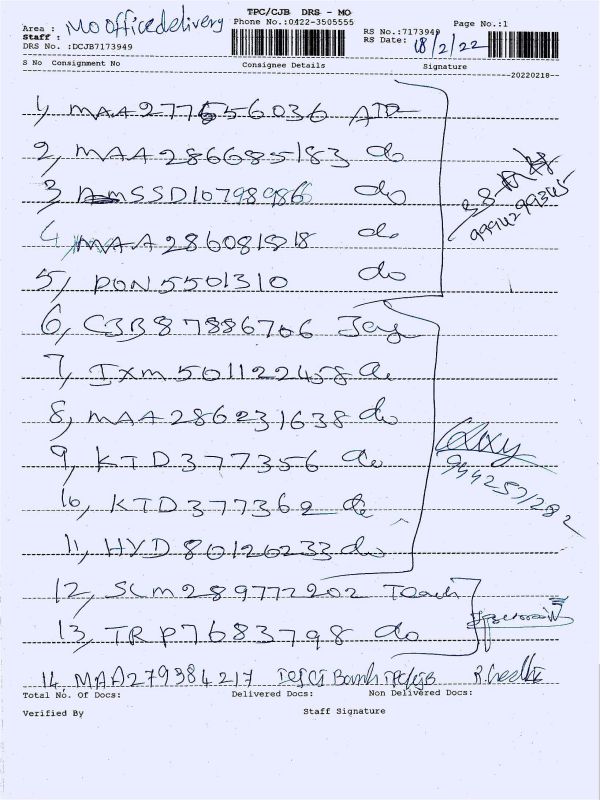 TPC/CJB DRS - MO
Area : MO office delivery Phone No.:0422-3505555 Page No.:1
Staff : RS No.:7173949
DRS No. :DCJB7173949 RS Date: 18/2/22
S No Consignment No Consignee Details Signature
20220218
1, MAA277656036
2, MAA286685183 do
3 AMSSD107989866 do
4, MAA286081818 do
5, PON5501310 do
9994299345
6, CJB87886706
7, IXM501122458 do
8, MAA286231638 do
9, KTD377356 do
10, KTD377362 do
11, HYD80126233 do
9442531282
12, SLM289772202
13, TRP7683798 do
14, MAA279384217
Total No. Of Docs: Delivered Docs: Non Delivered Docs:
Verified By Staff Signature